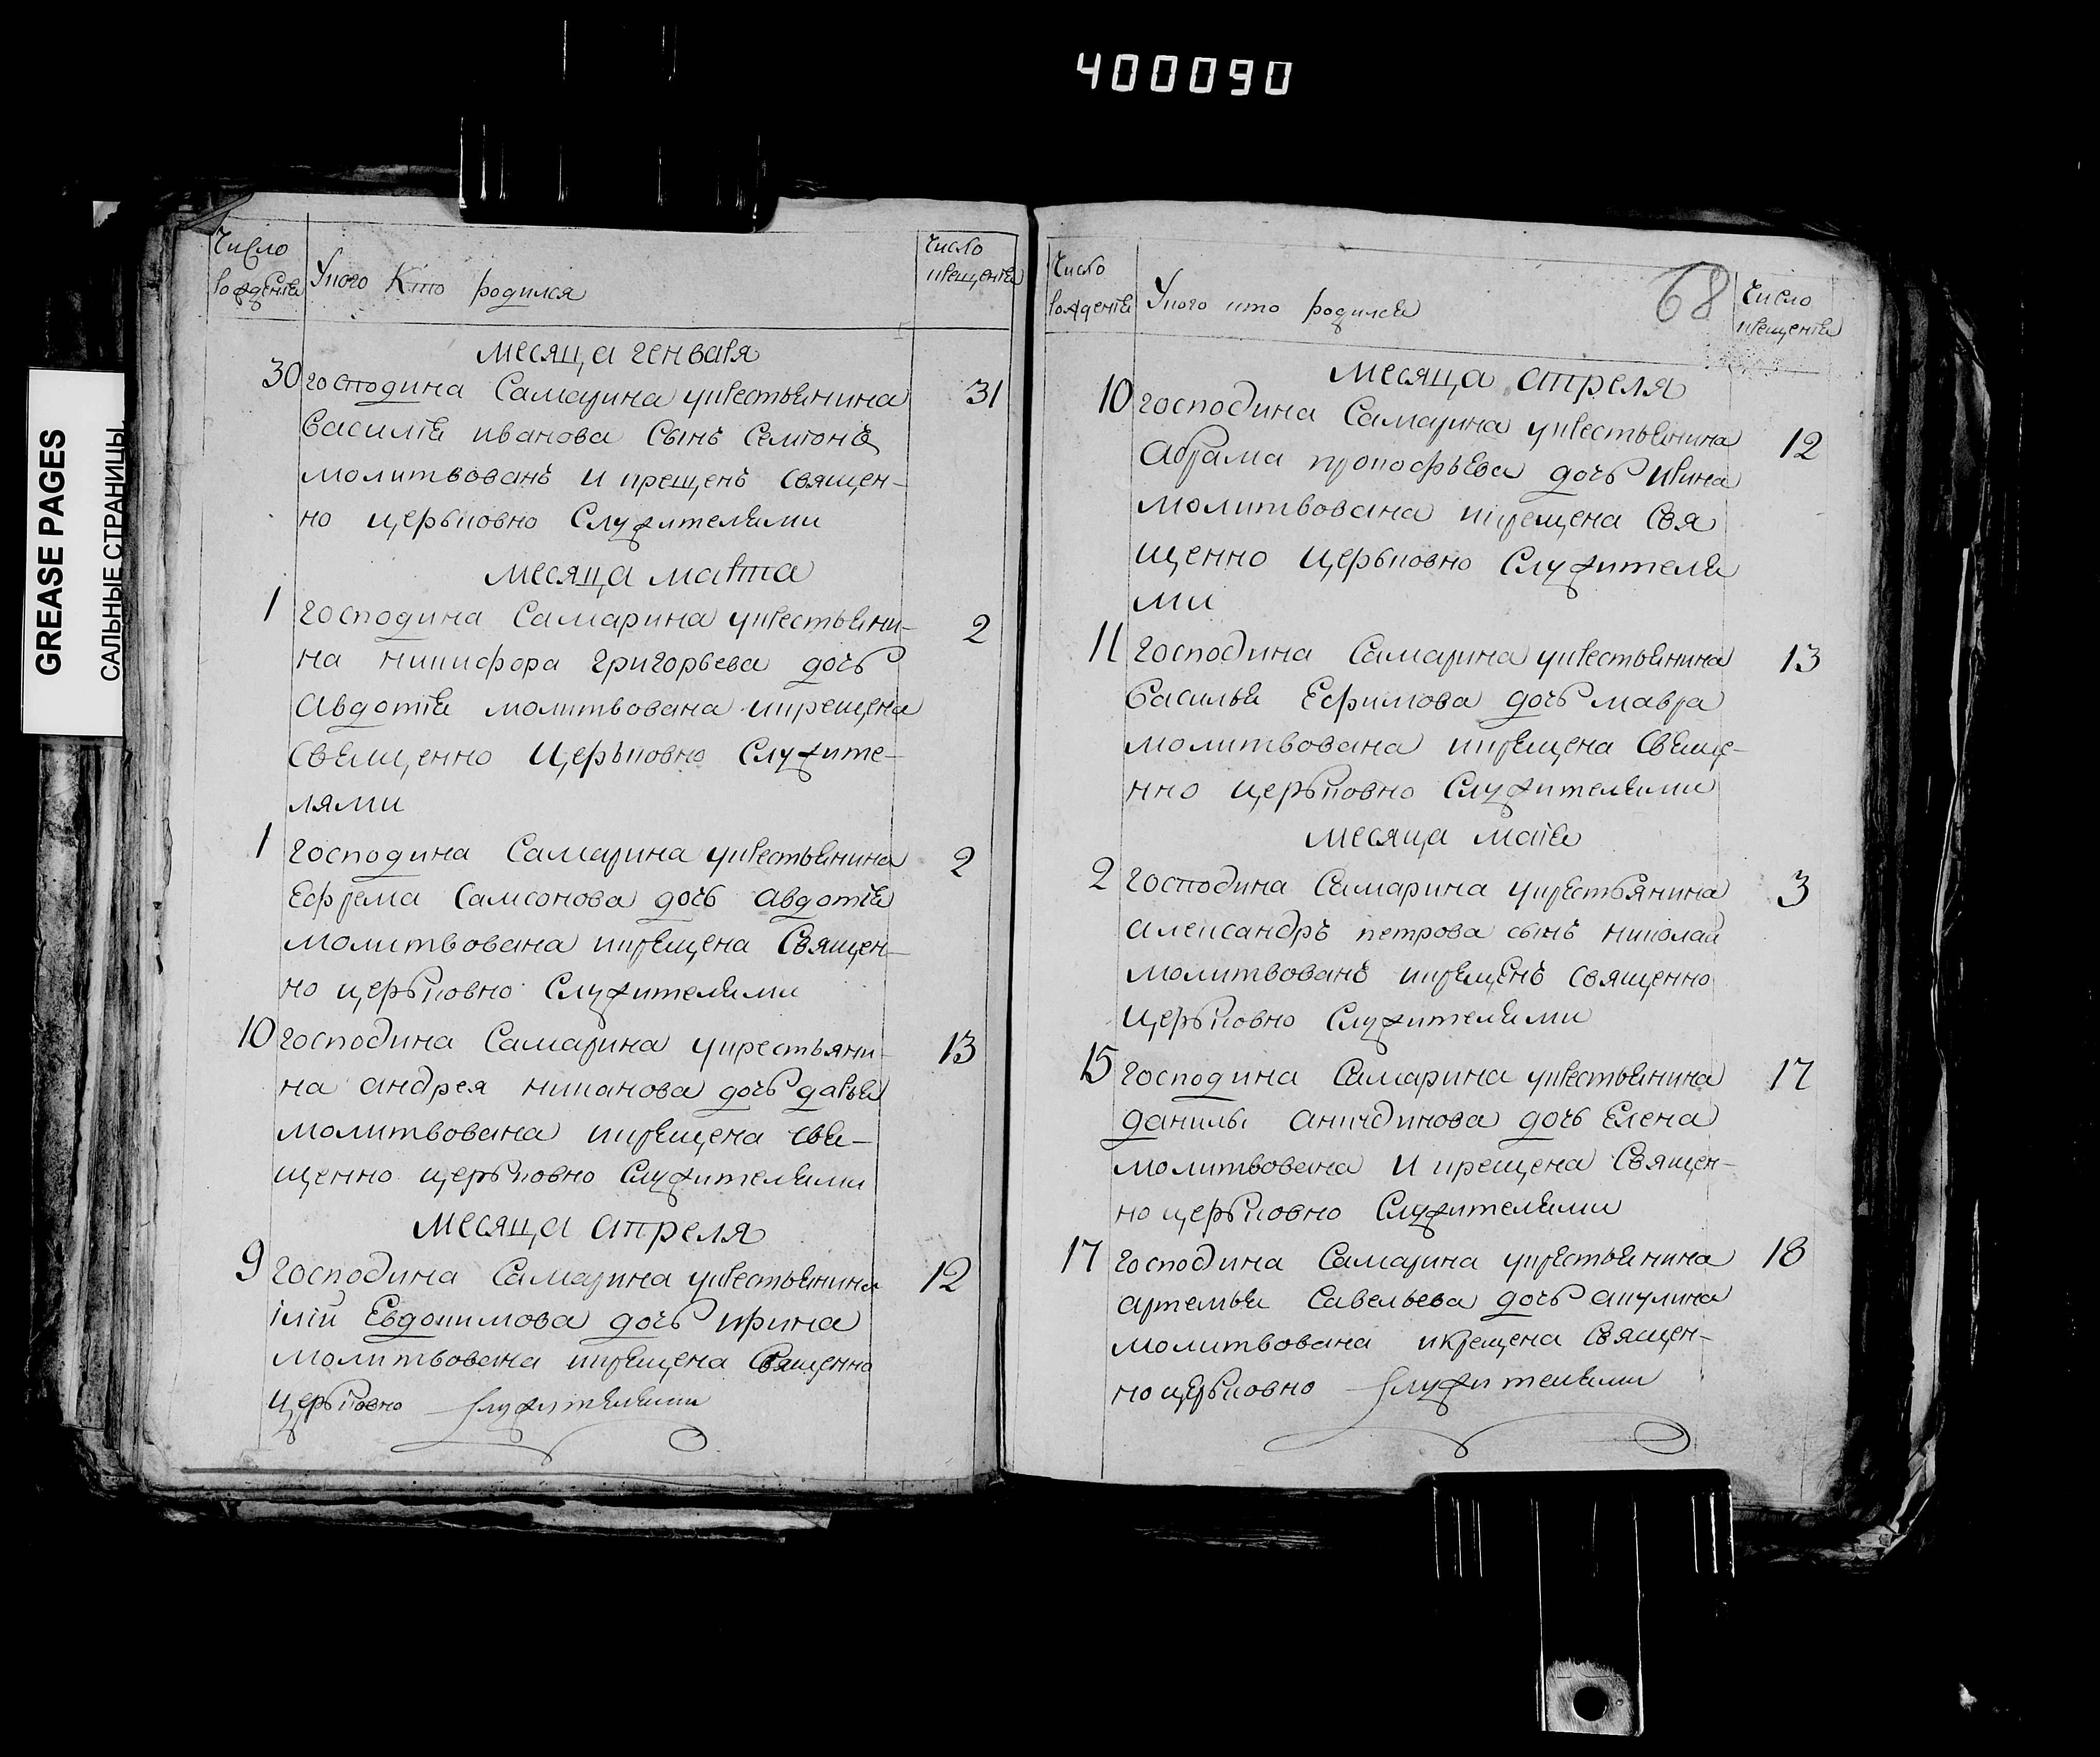 400090
GREASE PAGES
САЛЬНЫЕ СТРАНИЦЫ
Число
рожденія
Укого Кто родился
Число
крещенія
месяца генваря
30 господина Самарина укрестьянина 31
василія иванова Сынъ Семіонъ
молитвованъ и крещенъ священ-
но церьковно Служителями
месяца марта
1 господина Самарина укрестьяни- 2
на никифора григорьева дочь
Авдотія молитвована икрещена
Священно Церьковно Служите-
лями
1 господина Самарина укрестьянина 2
Ефрема Самсонова дочь авдотія
молитвована икрещена Священ-
но церьковно Служителями
10 господина Самарина укрестьяни- 13
на андрея никанова дочь дарья
молитвована икрещена свя-
щенно церьковно Служителями
месяца апреля
9 господина Самарина укрестьянина 12
іліи Евдокимова дочь ирина
молитвована икрещена Священно
церьковно служителями
Число
рожденія
Укого кто родился
68
Число
крещенія
месяца апреля
10 господина Самарина укрестьянина 12
Абрама прокофьева дочь ирина
молитвована икрещена Свя
щенно церьковно Служителя
ми
11 господина Самарина укрестьянина 13
Василья Ефимова дочь мавра
молитвована икрещена Свяще-
нно церьковно Служителями
месяца маія
2 господина Самарина укрестьянина 3
александръ петрова сынъ николай
молитвованъ икрещенъ священно
церьковно Служителями
15 господина Самарина укрестьянина 17
данилы дочь Елена
молитвована и крещена Священ-
но церьковно Служителями
17 господина Самарина укрестьянина 18
артемья Савельева дочь акулина
молитвована икрещена Священ-
но церьковно служителями